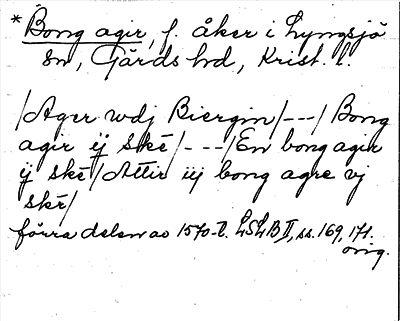 * Bong agir, f. åker i Lyngsjö
sn, Gärds hd, Krist. l.
/Ager wdj Biergin/---/Bong
agir ÿ skē/---/En bong agir
ÿ skē/Attir iij bong agre vj
skē/
förra delen av 1570-t. LSLB II, ss. 169, 171.
orig.